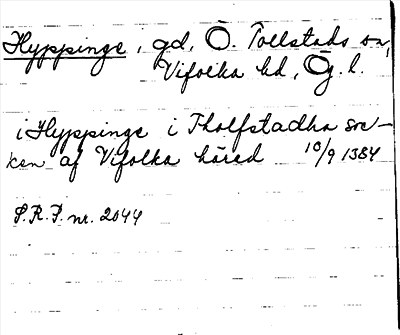 Hyppinge, gd, Ö. Tollstads sn,
Vifolka hd, Ög. l.
i Hyppinge i Tholfstadha soc-
ken af Vifolka häred 10/9 1384
S.R.P. nr. 2044